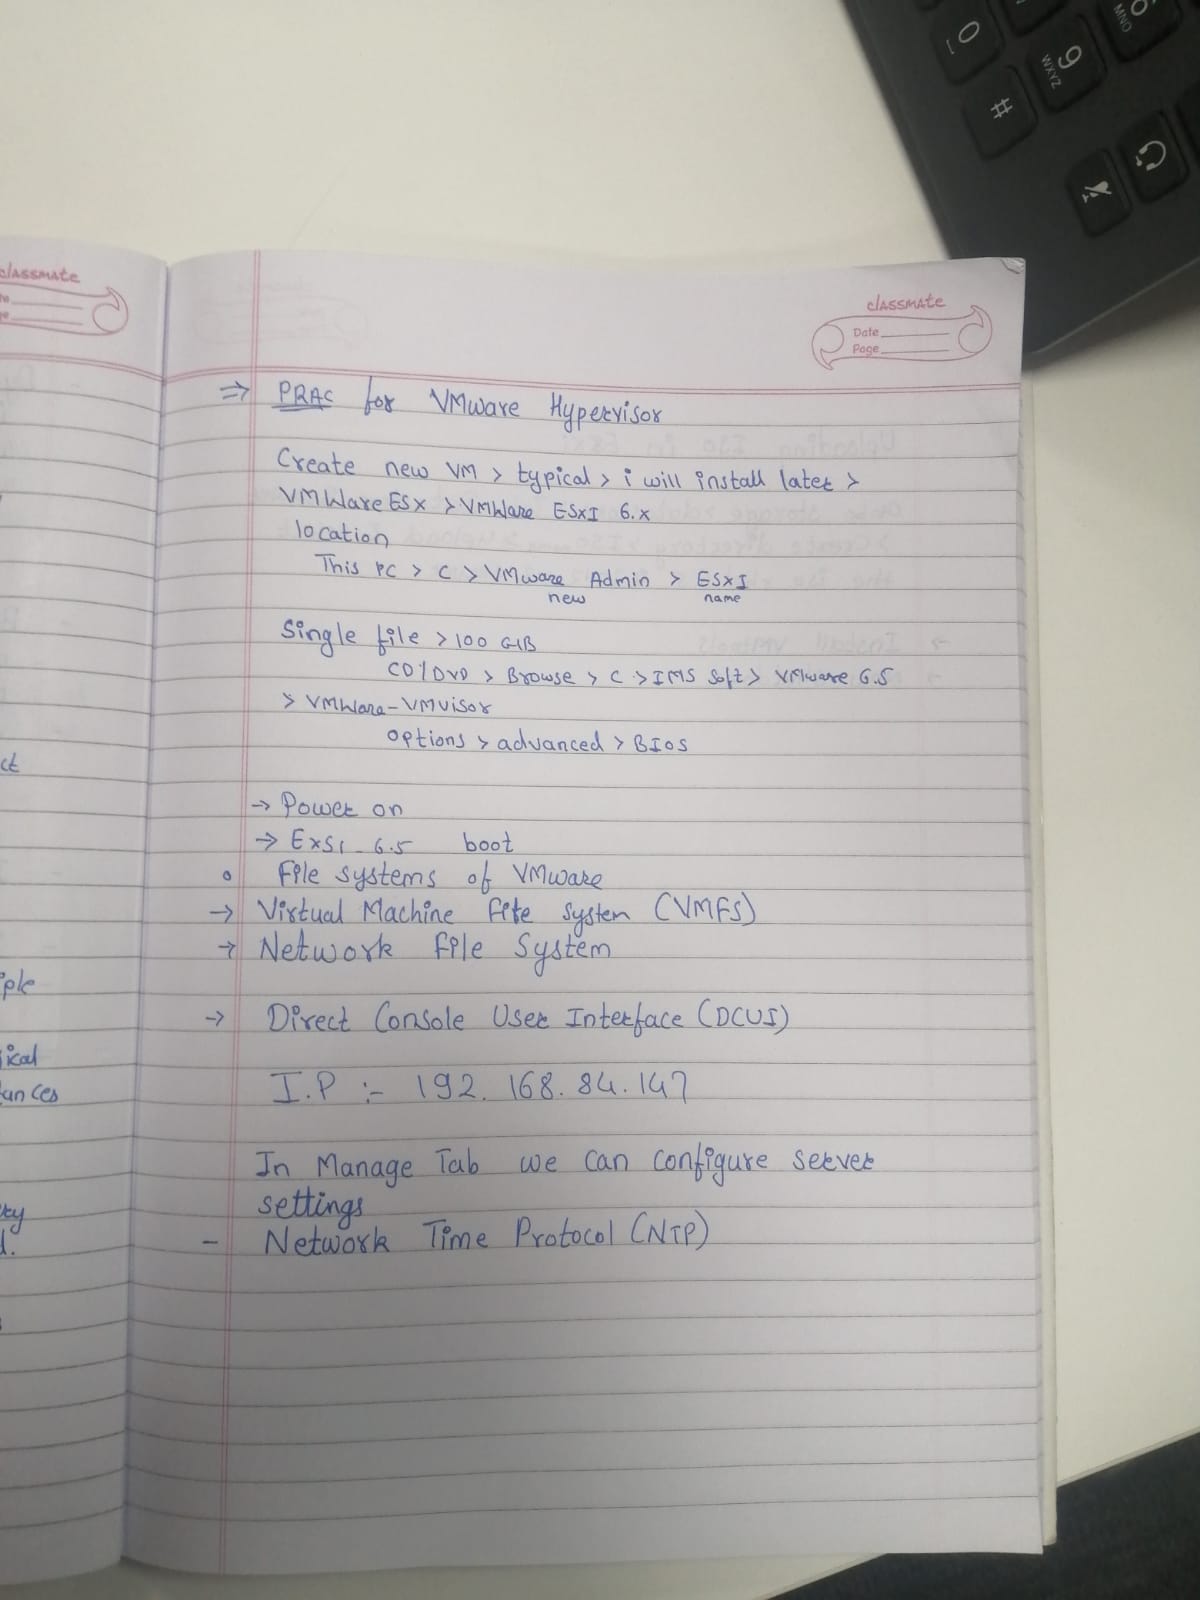 0
9
WXYZ
MNO
#
classmate
classmate
Date
Page
⇒ PRAC for VMware Hypervisor
Create new VM > typical > i will install later >
VMWare ESX > VMWare ESXI 6.x
location
This PC > C > VMware Admin > ESXI
new name
Single file > 100 GIB
CD/DVD > Browse > C > IMS Soft > VMware 6.5
> VMWare-VMvisor
options > advanced > BIOS
ct
→ Power on
→ ExSi 6.5 boot
o File systems of VMware
→ Virtual Machine File System (VMFS)
→ Network File System
iple
→ Direct Console User Interface (DCUI)
ical
ances
I.P :- 192.168.84.147
In Manage Tab we can configure server
settings
- Network Time Protocol (NTP)